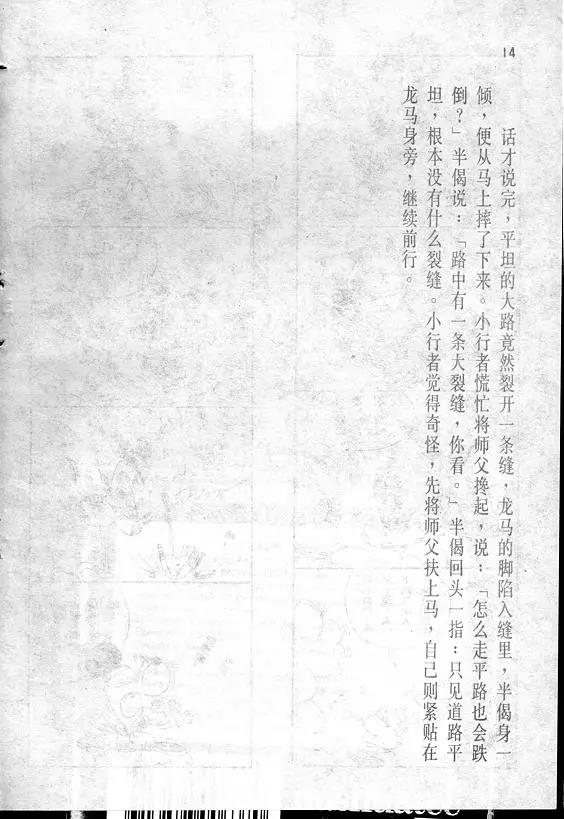 14
话才说完，平坦的大路竟然裂开一条缝，龙马的脚陷入缝里，半偈身一
倾，便从马上摔了下来。小行者慌忙将师父搀起，说：「怎么走平路也会跌
倒？」半偈说：「路中有一条大裂缝，你看。」半偈回头一指：只见道路平
坦，根本没有什么裂缝。小行者觉得奇怪，先将师父扶上马，自己则紧贴在
龙马身旁，继续前行。